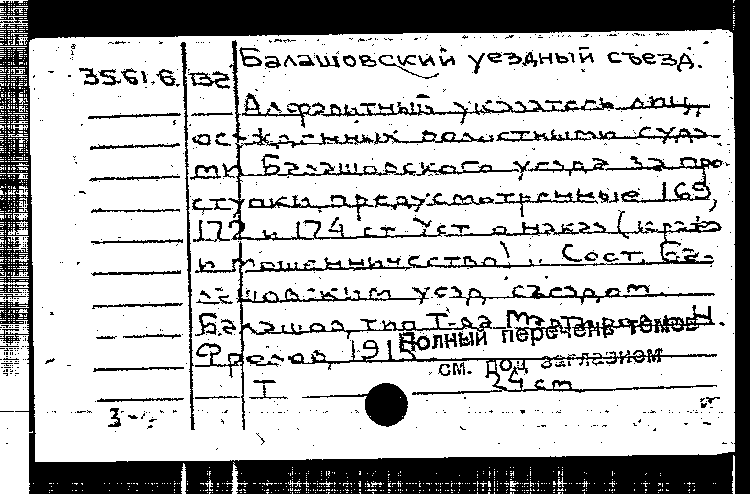 Балашовский уездный съезд.
35.61.6. 132
Алфавитный указатель лиц,
осужденных волостными суда-
ми Балашовского уезда за про-
ступки предусмотренные 169,
172 и 174 ст. Уст. о наказ. (кража
и мошенничество). Сост. Ба-
лашовским уезд. съездом.
Балашов, тип. Т-ва Мартыров и Н.
Фролов, 1915
Полный перечень томов
см. под заглавием
Т 24 cm
3